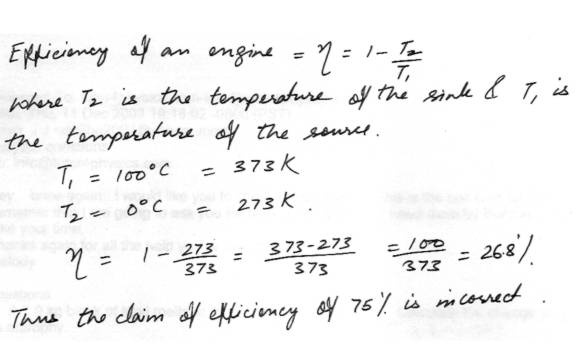 Efficiency of an engine = η = 1 - T₂/T₁
where T₂ is the temperature of the sink & T₁ is
the temperature of the source.
T₁ = 100°C = 373 K
T₂ = 0°C = 273 K.
η = 1 - 273/373 = 373-273/373 = 100/373 = 26.8%.
Thus the claim of efficiency of 75% is incorrect.